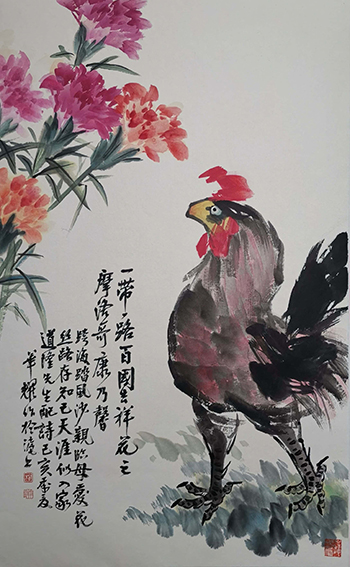 一带一路百國吉祥花之
摩洛哥康乃馨
跨海踏風沙親临母爱花
丝路存知己天涯似一家
道隆先生配詩己亥夏
章耀作於滬上